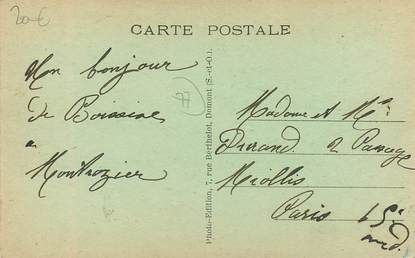 20€
CARTE POSTALE
Mon bonjour
de Boissise
a
Montrozier
77
Photo-Edition, 7, rue Berthelot, Domont (S.-et-O.).
Madame et Mr
Durand 2 Passage
Miollis
Paris 15e
arrd.